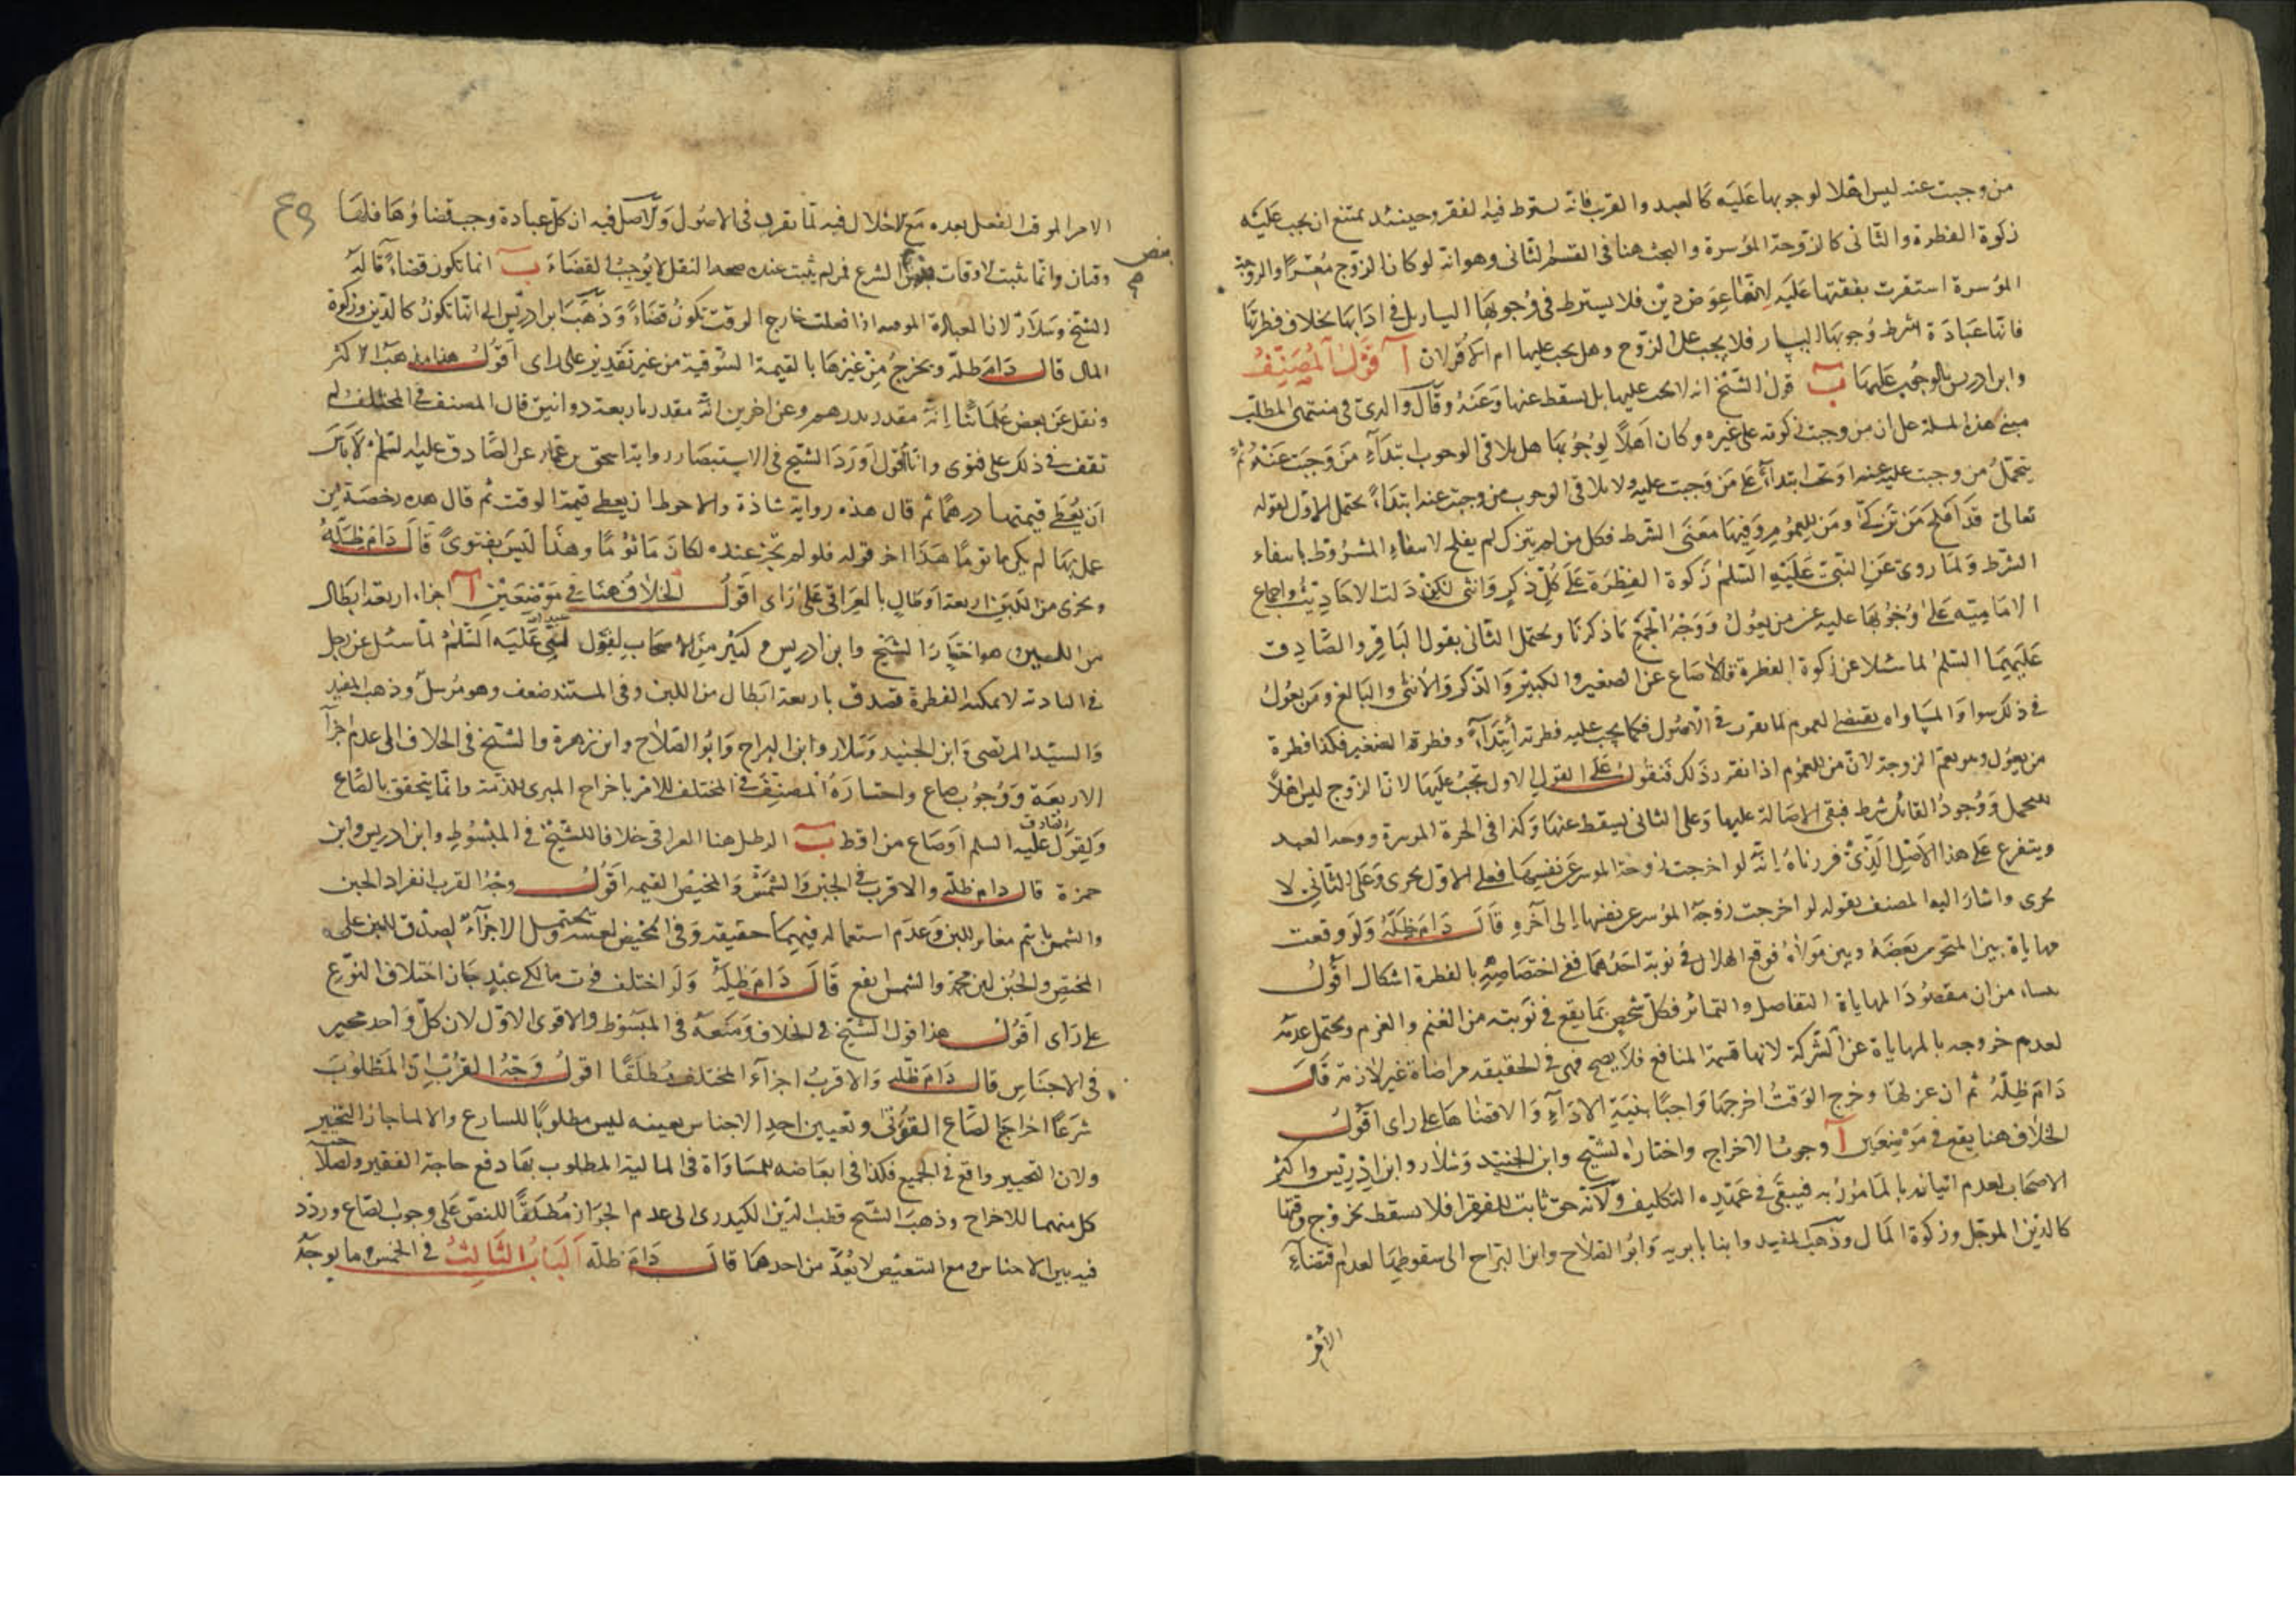 من وجبت عنه ليس اهلا لوجوبها عليه كالعبد والقريب فانه يسقط فيه لفقر وحينئذ يمتنع ان يجب عليه
زكوة الفطرة والثاني كالزوجة الموسرة والبحث هنا في القسم الثاني وهو انه لو كان الزوج معسرا والزوجة
الموسرة استقرت بفقتها عليه لانها عوض دين فلا يشترط في وجوبها اليسار بل في ادائها بخلاف فطرتها
فانها عبادة شرط وجوبها اليسار فلا يجب على الزوج وهل يجب عليها ام لا قولان آ قول المصنف
وابن ادريس بالوجوب عليها ب قول الشيخ انه لا يجب عليها بل يسقط عنها وعنه وقال والدي في منتهى المطلب
مبنى هذه المسلة على ان من وجبت زكوته على غيره وكان اهلا لوجوبها هل يلاقي الوجوب ابتداء من وجبت عنه ثم
يتحمل من وجبت عليه عنه او تجب ابتداء على من وجبت عليه ولا يلاقي الوجوب من وجبت عنه ابتداء يحتمل الاول لقوله
تعالى قد افلح من تزكى ومن للعموم وفيها معنى الشرط فكل من لم يتزك لم يفلح لانتفاء المشروط بانتفاء
الشرط ولما روي عن النبي عليه السلم زكوة الفطرة على كل ذكر وانثى لكن دلت الاحاديث واجماع
الامامية على وجوبها عليه عن من يعول ووجه الجمع ما ذكرنا ويحتمل الثاني بقول الباقر والصادق
عليهما السلم لما سئلا عن زكوة الفطرة قالا صاع عن الصغير والكبير والذكر والانثى والبالغ ومن يعول
في ذلك سواء والمساواه يقتضي العموم لما تقرر في الاصول فكما يجب عليه فطرته ابتداء وفطرة الصغير فكذا فطرة
من يعول وهو يعم الزوجة لان من للعموم اذا تقرر ذلك فنقول على القول الاول تجب عليها لان الزوج ليس اهلا
للتحمل ووجود القائل شرط فيبقى الاصالة عليها وعلى الثاني يسقط عنها وكذا في الحرة الموسرة زوجة العبد
ويتفرع على هذا الاصل الذي قررناه انه لو اخرجت زوجة الموسر عن نفسها فعلى الاول يجزى وعلى الثاني لا
يجزى واشار اليه المصنف بقوله لو اخرجت زوجة الموسر عن نفسها الى آخره قال دام ظله ولو وقعت
مهاياة بين المتحرر بعضه وبين مولاه فوقع الهلال في نوبة احدهما ففي اختصاصه بالفطرة اشكال اقول
من ان مقصود المهاياة التفاصل والتمائز فكل شخص بما يقع في نوبته من الغنم والغرم ويحتمل عدمه
لعدم خروجه بالمهاياة عن الشركة لانها قسمة المنافع فلا يصح فهي في الحقيقة مراضاة غير لازمة قال
دام ظله ثم ان عزلها وخرج الوقت اخرجها واجبا بنية الاداء والا قضاها على راى اقول
الخلاف هنا يقع في موضعين آ وجوب الاخراج واختاره الشيخ وابن الجنيد وسلار وابن ادريس واكثر
الاصحاب لعدم اتيانه بالمامور به فيبقى في عهدة التكليف ولانه حق ثابت للفقرا فلا يسقط بخروج وقتها
كالدين الموجل وزكوة المال وذهب المفيد وابنا بابويه وابو الصلاح وابن البراج الى سقوطها لعدم اقتضاء
الامر
الامر الموقت الفعل بعده مع الاخلال فيه لما تقرر في الاصول ولا اصل فيه ان كل عبادة وجب قضاؤها فلها
وقتان وانما تثبت الاوقات بنص الشرع فلم يثبت عنده صحة النقل لا يوجب القضاء ب انما تكون قضاء قاله
بنص
الشيخ وسلار لان العبادة الموقتة اذا فعلت خارج الوقت تكون قضاء وذهب ابن ادريس الى انها تكون كالدين وزكوة
المال قال دام ظله ويخرج من غيرها بالقيمة السوقية من غير تقدير على راى اقول هذا مذهب الاكثر
ونقل عن بعض علمائنا انه مقدر بدرهم وعن اخرين انه مقدر باربعة دوانيق قال المصنف في المختلف لم
نقف في ذلك على فتوى وانا اقول اورد الشيخ في الاستبصار رواية اسحق بن عمار عن الصادق عليه السلم لا باس
ان يعطى قيمتها درهما ثم قال هذه رواية شاذة والاحوط ان يعطى قيمة الوقت ثم قال هذه رخصة من
عمل بها لم يكن ماثوما هذا اخر قوله فلو لم يجز عنده لكان ماثوما وهذا ليس بفتوى قال دام ظله
ويجزى من اللبن اربعة ارطال بالعراقي على راى اقول الخلاف هنا في موضعين آ اجزاء اربعة ارطال
من اللبن هو اختيار الشيخ وابن ادريس وكثير من الاصحاب لقول عليه السلم لما سئل عن رجل
في البادية لا يمكنه الفطرة تصدق باربعة ارطال من اللبن وفي المستند ضعف وهو مرسل وذهب المفيد
والسيد المرتضى وابن الجنيد وسلار وابن البراج وابو الصلاح وابن زهرة والشيخ في الخلاف الى عدم اجزا
الاربعة ووجوب صاع واختاره المصنف في المختلف للامر باخراج المبرى للذمة وانما يتحقق بالصاع
ولقول الصادق عليه السلم او صاع من اقط ب الرطل هنا العراقي خلافا للشيخ في المبسوط وابن ادريس وابن
حمزة قال دام ظله والاقرب في الجبن والشمش والمخيض القيمه اقول وجه القرب انفراد الجبن
والشمش باسم مغاير للبن وعدم استعماله فيهما حقيقة وفي المخيض يحتمل الاجزاء لصدق اللبن على
المخيض والجبن لبن مجمد والشمس يقع قال دام ظله ولو اختلف قوت مالكي عبد جاز اختلاف النوع
على راى اقول هذا قول الشيخ في الخلاف ومنعه في المبسوط والاقوى الاول لان كل واحد مخير
في الاجناس قال دام ظله والاقرب اجزاء المختلف مطلقا اقول وجه القرب ان المطلوب
شرعا اخراج الصاع القوتي وتعيين احد الاجناس بعينه ليس مطلوبا للشارع والا لما جاز التخيير
ولان التخيير واقع في الجميع فكذا في ابعاضه للمساواة في المالية المطلوب بها دفع حاجة الفقير
كل منهما للاخراج وذهب الشيخ قطب الدين الكيدري الى عدم الجواز مطلقا للنص على وجوب الصاع وردد
فيه بين الاجناس ومع التبعيض لا يعد من احدهما قال دام ظله الباب الثالث في الخمس وما يوجه